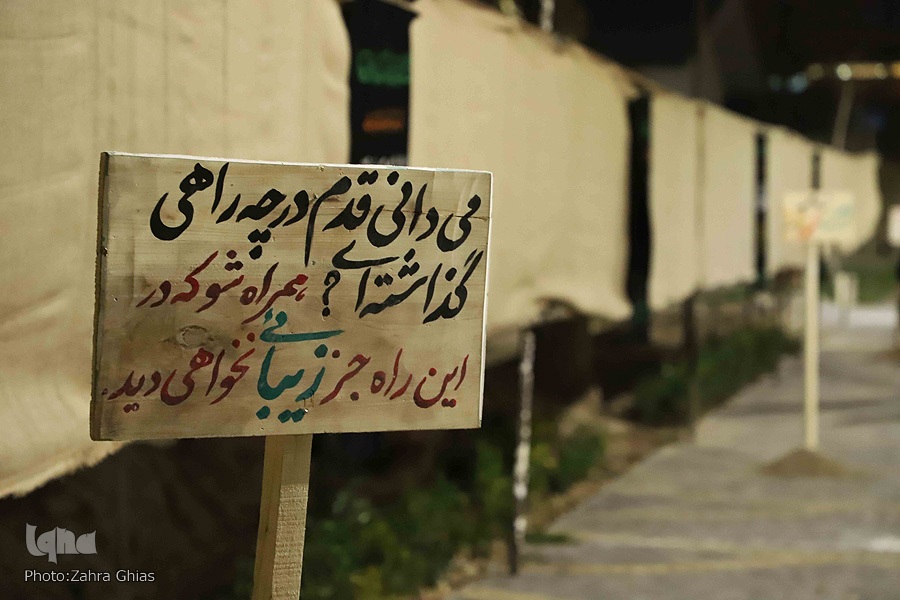 می دانی قدم در چه راهی
گذاشته ای ؟ همراه شو که در
این راه جز زیبائی نخواهی دید.
iqna
Photo:Zahra Ghias